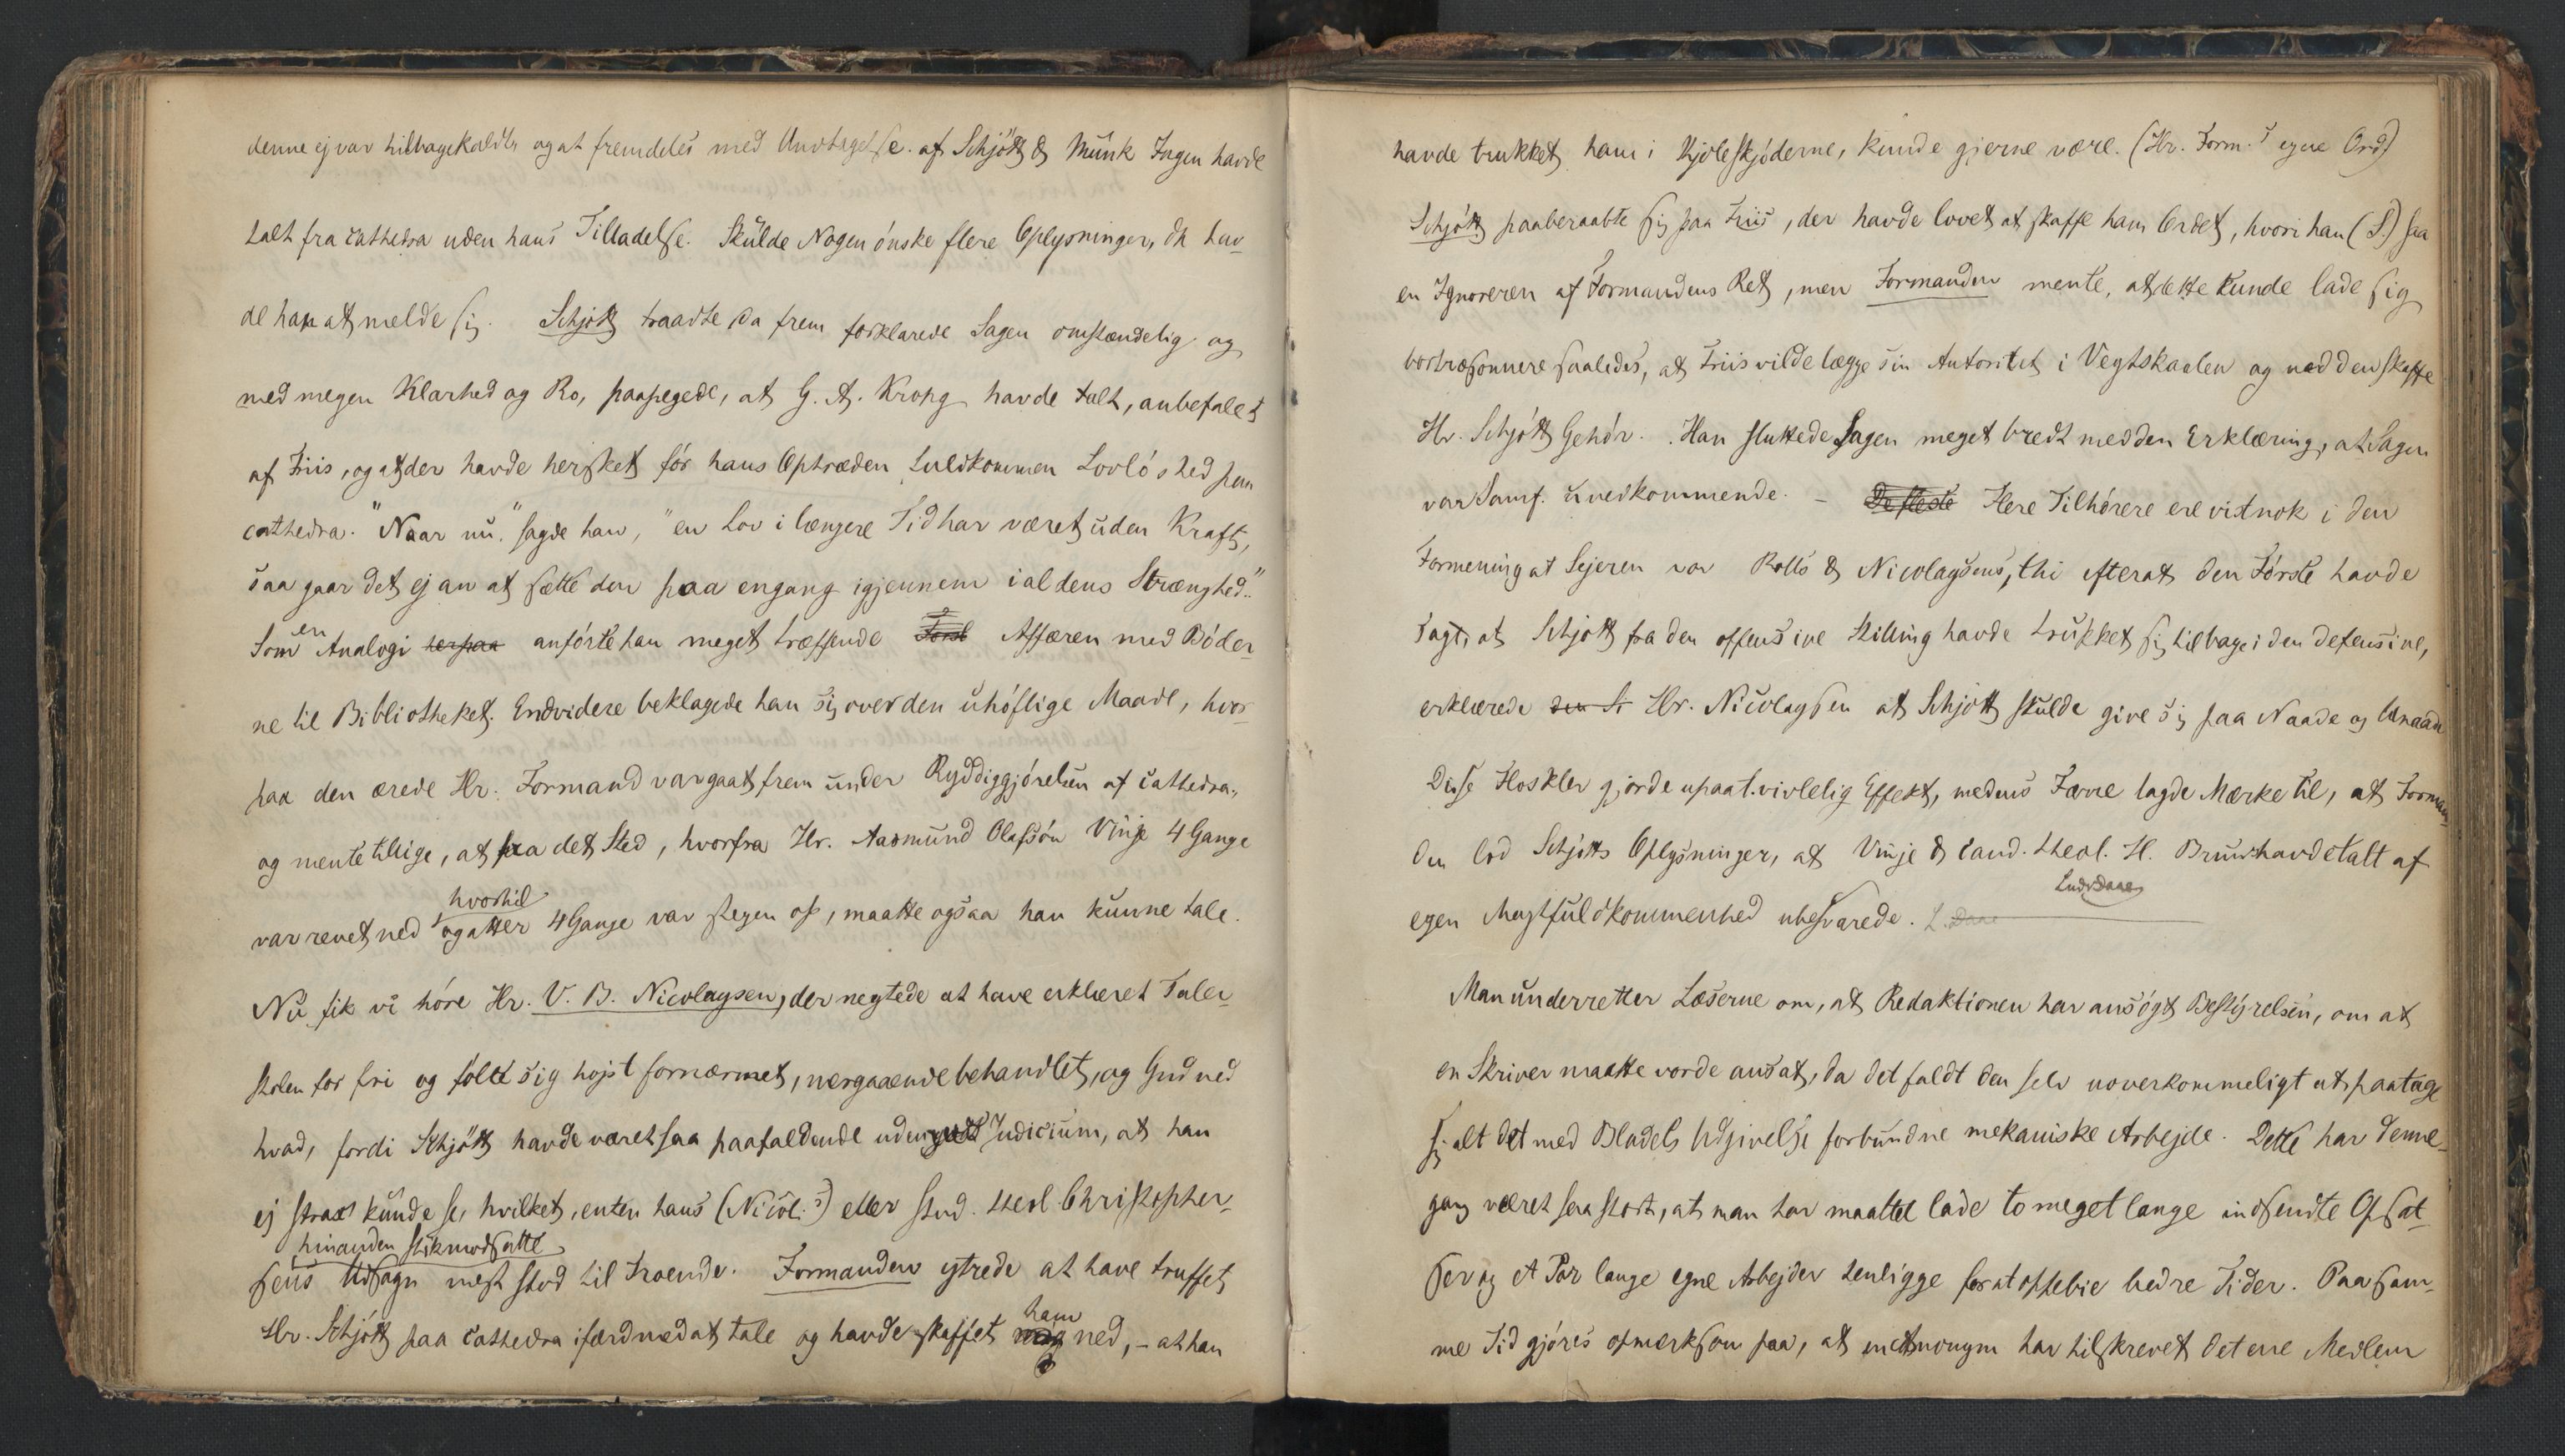 denne ej var tilbagekaldt, og at fremdeles med Undtagelse af Schjött & Munk Ingen havde
talt fra cathedra uden hans Tilladelse. Skulde Nogen ønske flere Oplysninger, da hav-
de han at melde sig. Schjøtt traadte da frem forklarede Sagen omstændelig og
med megen Klarhed og Ro, paapegede, at G. A. Krohg havde talt, anbefalet
af Friis, og at der havde hersket før hans Optræden fuldkommen Lovløshed paa
cathedra. "Naar nu," sagde han, "en Lov i længere Tid har været uden Kraft,
saa gaar det ej an at sætte den paa engang igjennem i al dens Strænghed."
Som en Analogi herpaa anførte han meget træffende Affæren med Bøder-
ne til Bibliotheket. Endvidere beklagede han sig over den uhøflige Maade, hvor-
paa den ærede Hr. Formand var gaaet frem under Ryddiggjørelsen af cathedra,
og mente tillige, at paa det Sted, hvorfra Hr. Aasmund Olafsøn Vinje 4 Gange
var revet ned og hvortil atter 4 Gange var stegen op, maatte ogsaa han kunne tale.
Nu fik vi høre Hr. V. B. Nicolaysen, der negtede at have erklæret Taler-
stolen for fri og følte sig højst fornærmet, nærgaaende behandlet, og Gud ved
hvad, fordi Schjøtt havde været saa paafaldende uden Judicium, at han
ej strax kunde se, hvilket, enten hans (Nicol.s) eller stud. theol Christopher-
sens hinanden stikmodsatte Udsagn mest stod til Troende. Formanden ytrede at have truffet
Hr. Schjøtt paa cathedra ifærd med at tale og havde skaffet ham ned, – at han
havde trukket ham i Kjoleskjøderne, kunde gjerne være. (Hr. Form.s egne Ord)
Schjøtt paaberaabte sig paa Friis, der havde lovet at skaffe ham Ordet, hvori han (S.) saa
en Ignoreren af Formandens Ret, men Formanden mente, at dette kunde lade sig
bortræsonnere saaledes, at Friis vilde lægge sin Autoritet i Vegtskaalen og med den skaffe
Hr. Schjøtt Gehør. Han sluttede Sagen meget bredt med den Erklæring, at Sagen
var Samf. uvedkommende. – De fleste Flere Tilhørere ere vistnok i den
Formening at Sejeren var Rolls & Nicolaysens, thi efterat den Første havde
sagt, at Schjøtt fra den offensive Stilling havde trukket sig tilbage i den defensive,
erklærede den S. Hr. Nicolaysen at Schjøtt skulde give sig paa Naade og Unaade
Disse Floskler gjorde upaatvivlelig Effekt, medens Færre lagde Mærke til, at Forman-
den lod Schjøtts Oplysninger, at Vinje & cand. theol. H. Bruun havde talt af
egen Magtfuldkommenhed ubesvarede. L. Daae Ludv Daae
Man underretter Læserne om, at Redaktionen har ansøgt Bestyrelsen, om at
en Skriver maatte vorde ansat, da det faldt den selv uoverkommeligt at paatage
sig alt det med Bladets Udgivelse forbundne mekaniske Arbejde. Dette har denne-
gang været saa stort, at man har maattet lade to meget lange indsendte Opsat-
ser og et Par lange egne Arbejder henligge for at oppebie bedre Tider. Paa sam-
me Tid gjøres opmærksom paa, at en Anonym har tilskrevet det ene Medlem